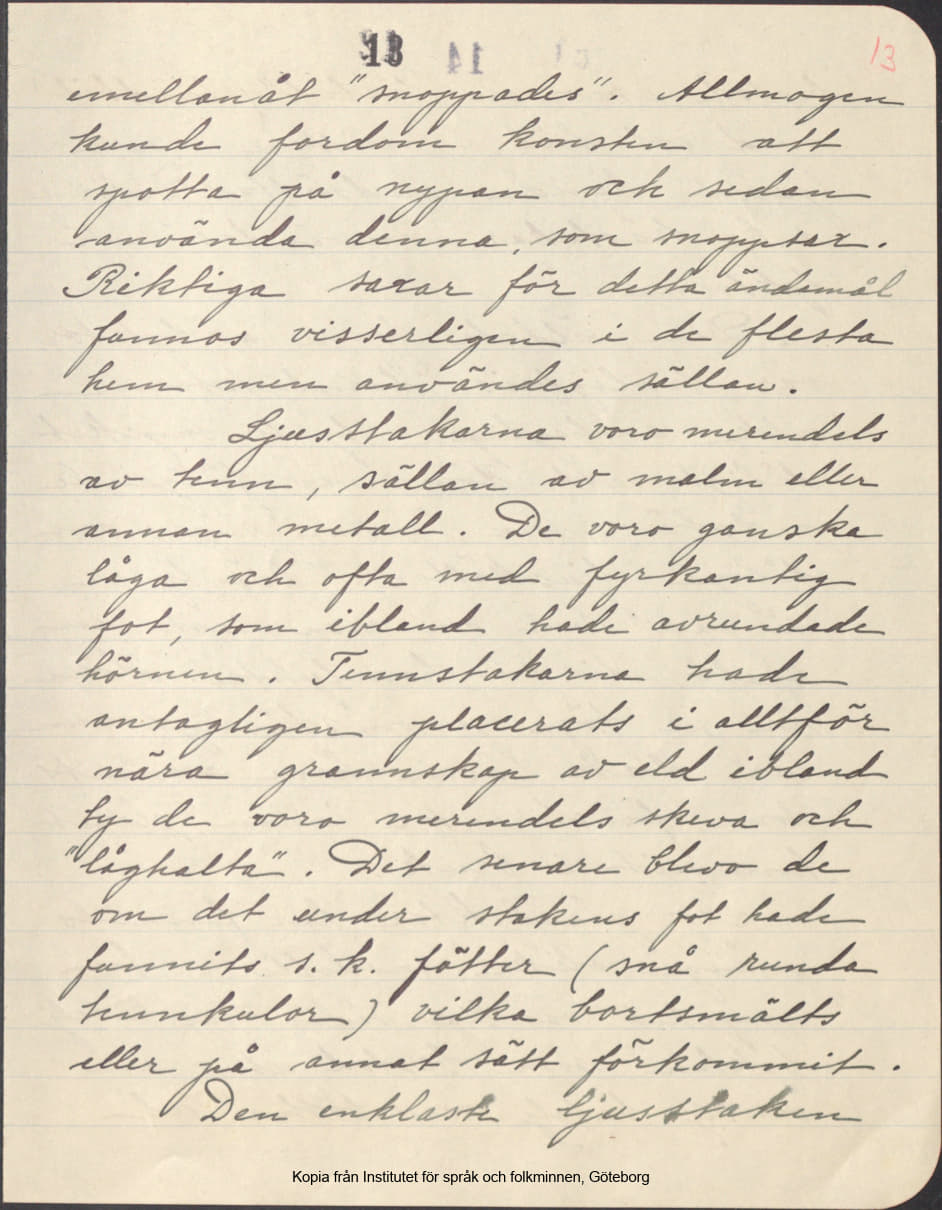 13
13
emellanåt "snoppades". Allmogen
kunde fordom konsten att
spotta på nypan och sedan
använda denna, som snoppsax.
Riktiga saxar för detta ändamål
funnos visserligen i de flesta
hem men användes sällan.
Ljusstakarna voro merendels
av tenn, sällan av malm eller
annan metall. De voro ganska
låga och ofta med fyrkantig
fot, som ibland hade avrundade
hörnen. Tennstakarna hade
antagligen placerats i alltför
nära grannskap av eld ibland
ty de voro merendels skeva och
"låghalta". Det senare blevo de
om det under stakens fot hade
funnits s.k. fötter (små runda
tennkulor) vilka bortsmälts
eller på annat sätt förkommit.
Den enklaste ljusstaken
Kopia från Institutet för språk och folkminnen, Göteborg